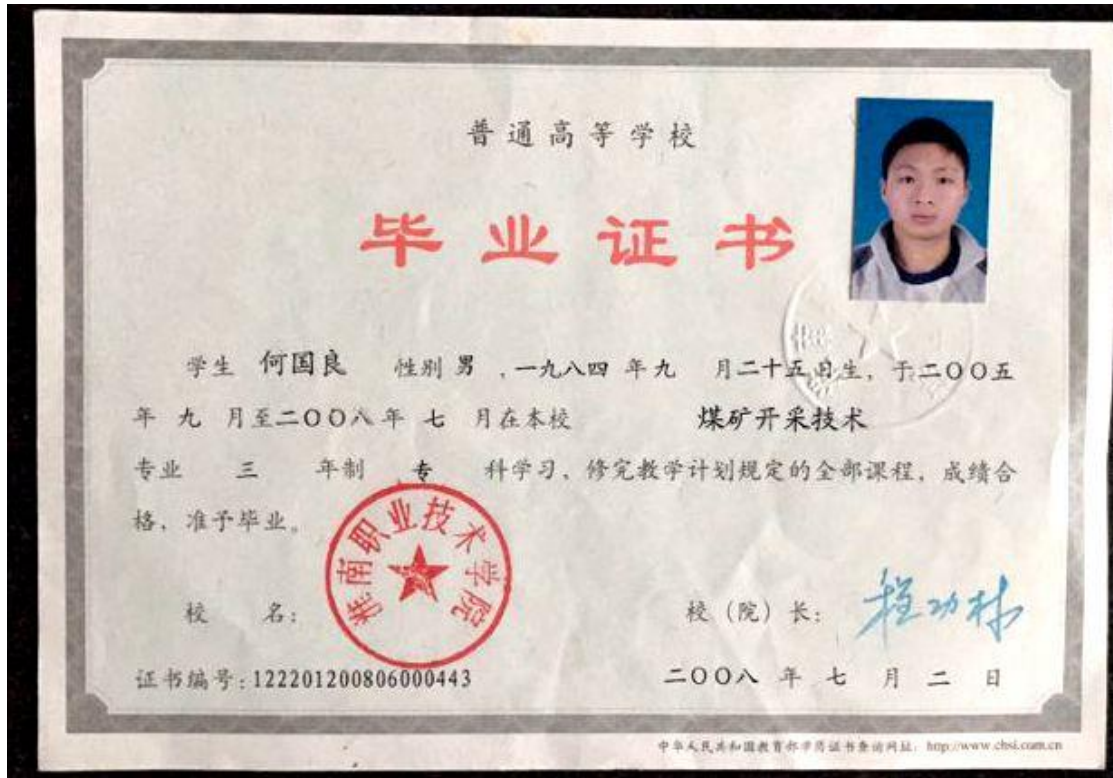 普通高等学校
毕业证书
学生 何国良 性别 男 ，一九八四 年 九 月 二十五 日生，于二〇〇五
年 九 月至二〇〇八 年 七 月在本校 煤矿开采技术
专业 三 年制 专 科学习、修完教学计划规定的全部课程，成绩合
格，准予毕业。
淮南职业技术学院
校 名：
校（院）长： 程功林
证书编号:122201200806000443
二〇〇八 年 七 月 二 日
中华人民共和国教育部学历证书查询网址：http://www.chsi.com.cn